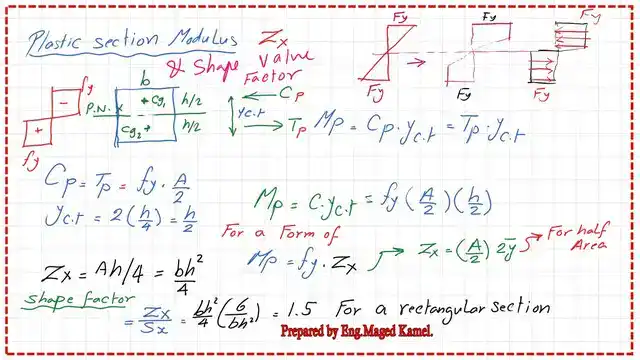 Plastic section Modulus Zx
& Shape value
Factor
Fy
Fy
Fy
Fy
Fy
Fy
b
fy
-
+
fy
P.N.
+cg1
cg2+
h/2
h/2
yc.t
Cp
Tp
Mp = Cp.yc.t = Tp.yc.t
Cp = Tp = fy . A/2
yc.t = 2(h/4) = h/2
Mp = C.yc.t = fy (A/2)(h/2)
For a Form of
Mp = fy . Zx
Zx = (A/2) 2ȳ
For half
Area
Zx = Ah/4 = bh²/4
shape factor
= Zx/Sx = bh²/4 (6/bh²) = 1.5 For a rectangular section
Prepared by Eng.Maged Kamel.